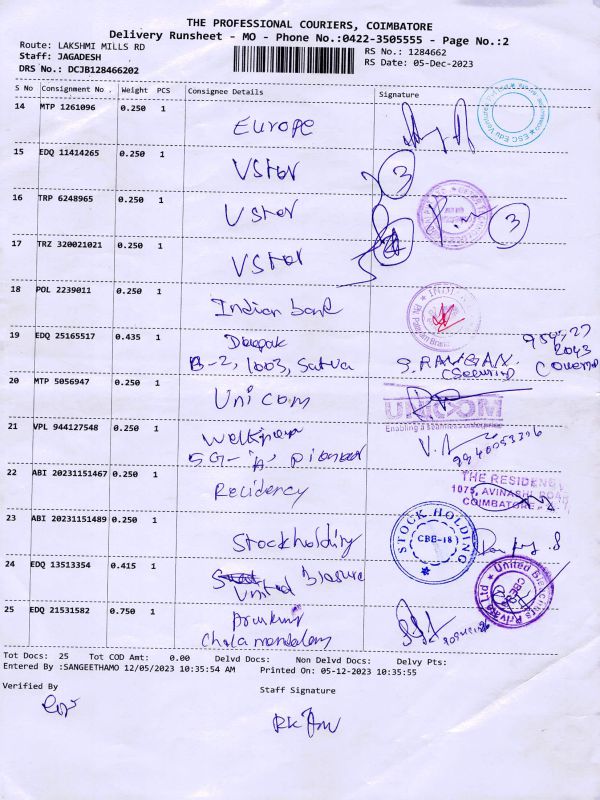 THE PROFESSIONAL COURIERS, COIMBATORE
Delivery Runsheet - MO - Phone No.:0422-3505555 - Page No.:2
Route: LAKSHMI MILLS RD
RS No.: 1284662
Staff: JAGADESH
RS Date: 05-Dec-2023
DRS No.: DCJB128466202
S No Consignment No. Weight PCS Consignee Details Signature
14 MTP 1261096 0.250 1
Europe
15 EDQ 11414265 0.250 1
VStar
3
16 TRP 6248965 0.250 1
VStar
3
17 TRZ 320021021 0.250 1
VStar
18 POL 2239011 0.250 1
Indian bank
19 EDQ 25165517 0.435 1
Deepak
B-2, 1003, Satva
S. RANGAN.
(Security)
20 MTP 5056947 0.250 1
Unicom
UNICOM
21 VPL 944127548 0.250 1
5G-'A'
22 ABI 20231151467 0.250 1
Recidency
THE RESIDENCY
1075, AVINASHI ROAD
COIMBATORE
23 ABI 20231151489 0.250 1
Stockholding
STOCK HOLDING
CBE-18
24 EDQ 13513354 0.415 1
United
25 EDQ 21531582 0.750 1
Tot Docs: 25 Tot COD Amt: 0.00 Delvd Docs: Non Delvd Docs: Delvy Pts:
Entered By :SANGEETHAMO 12/05/2023 10:35:54 AM Printed On: 05-12-2023 10:35:55
Verified By
Staff Signature